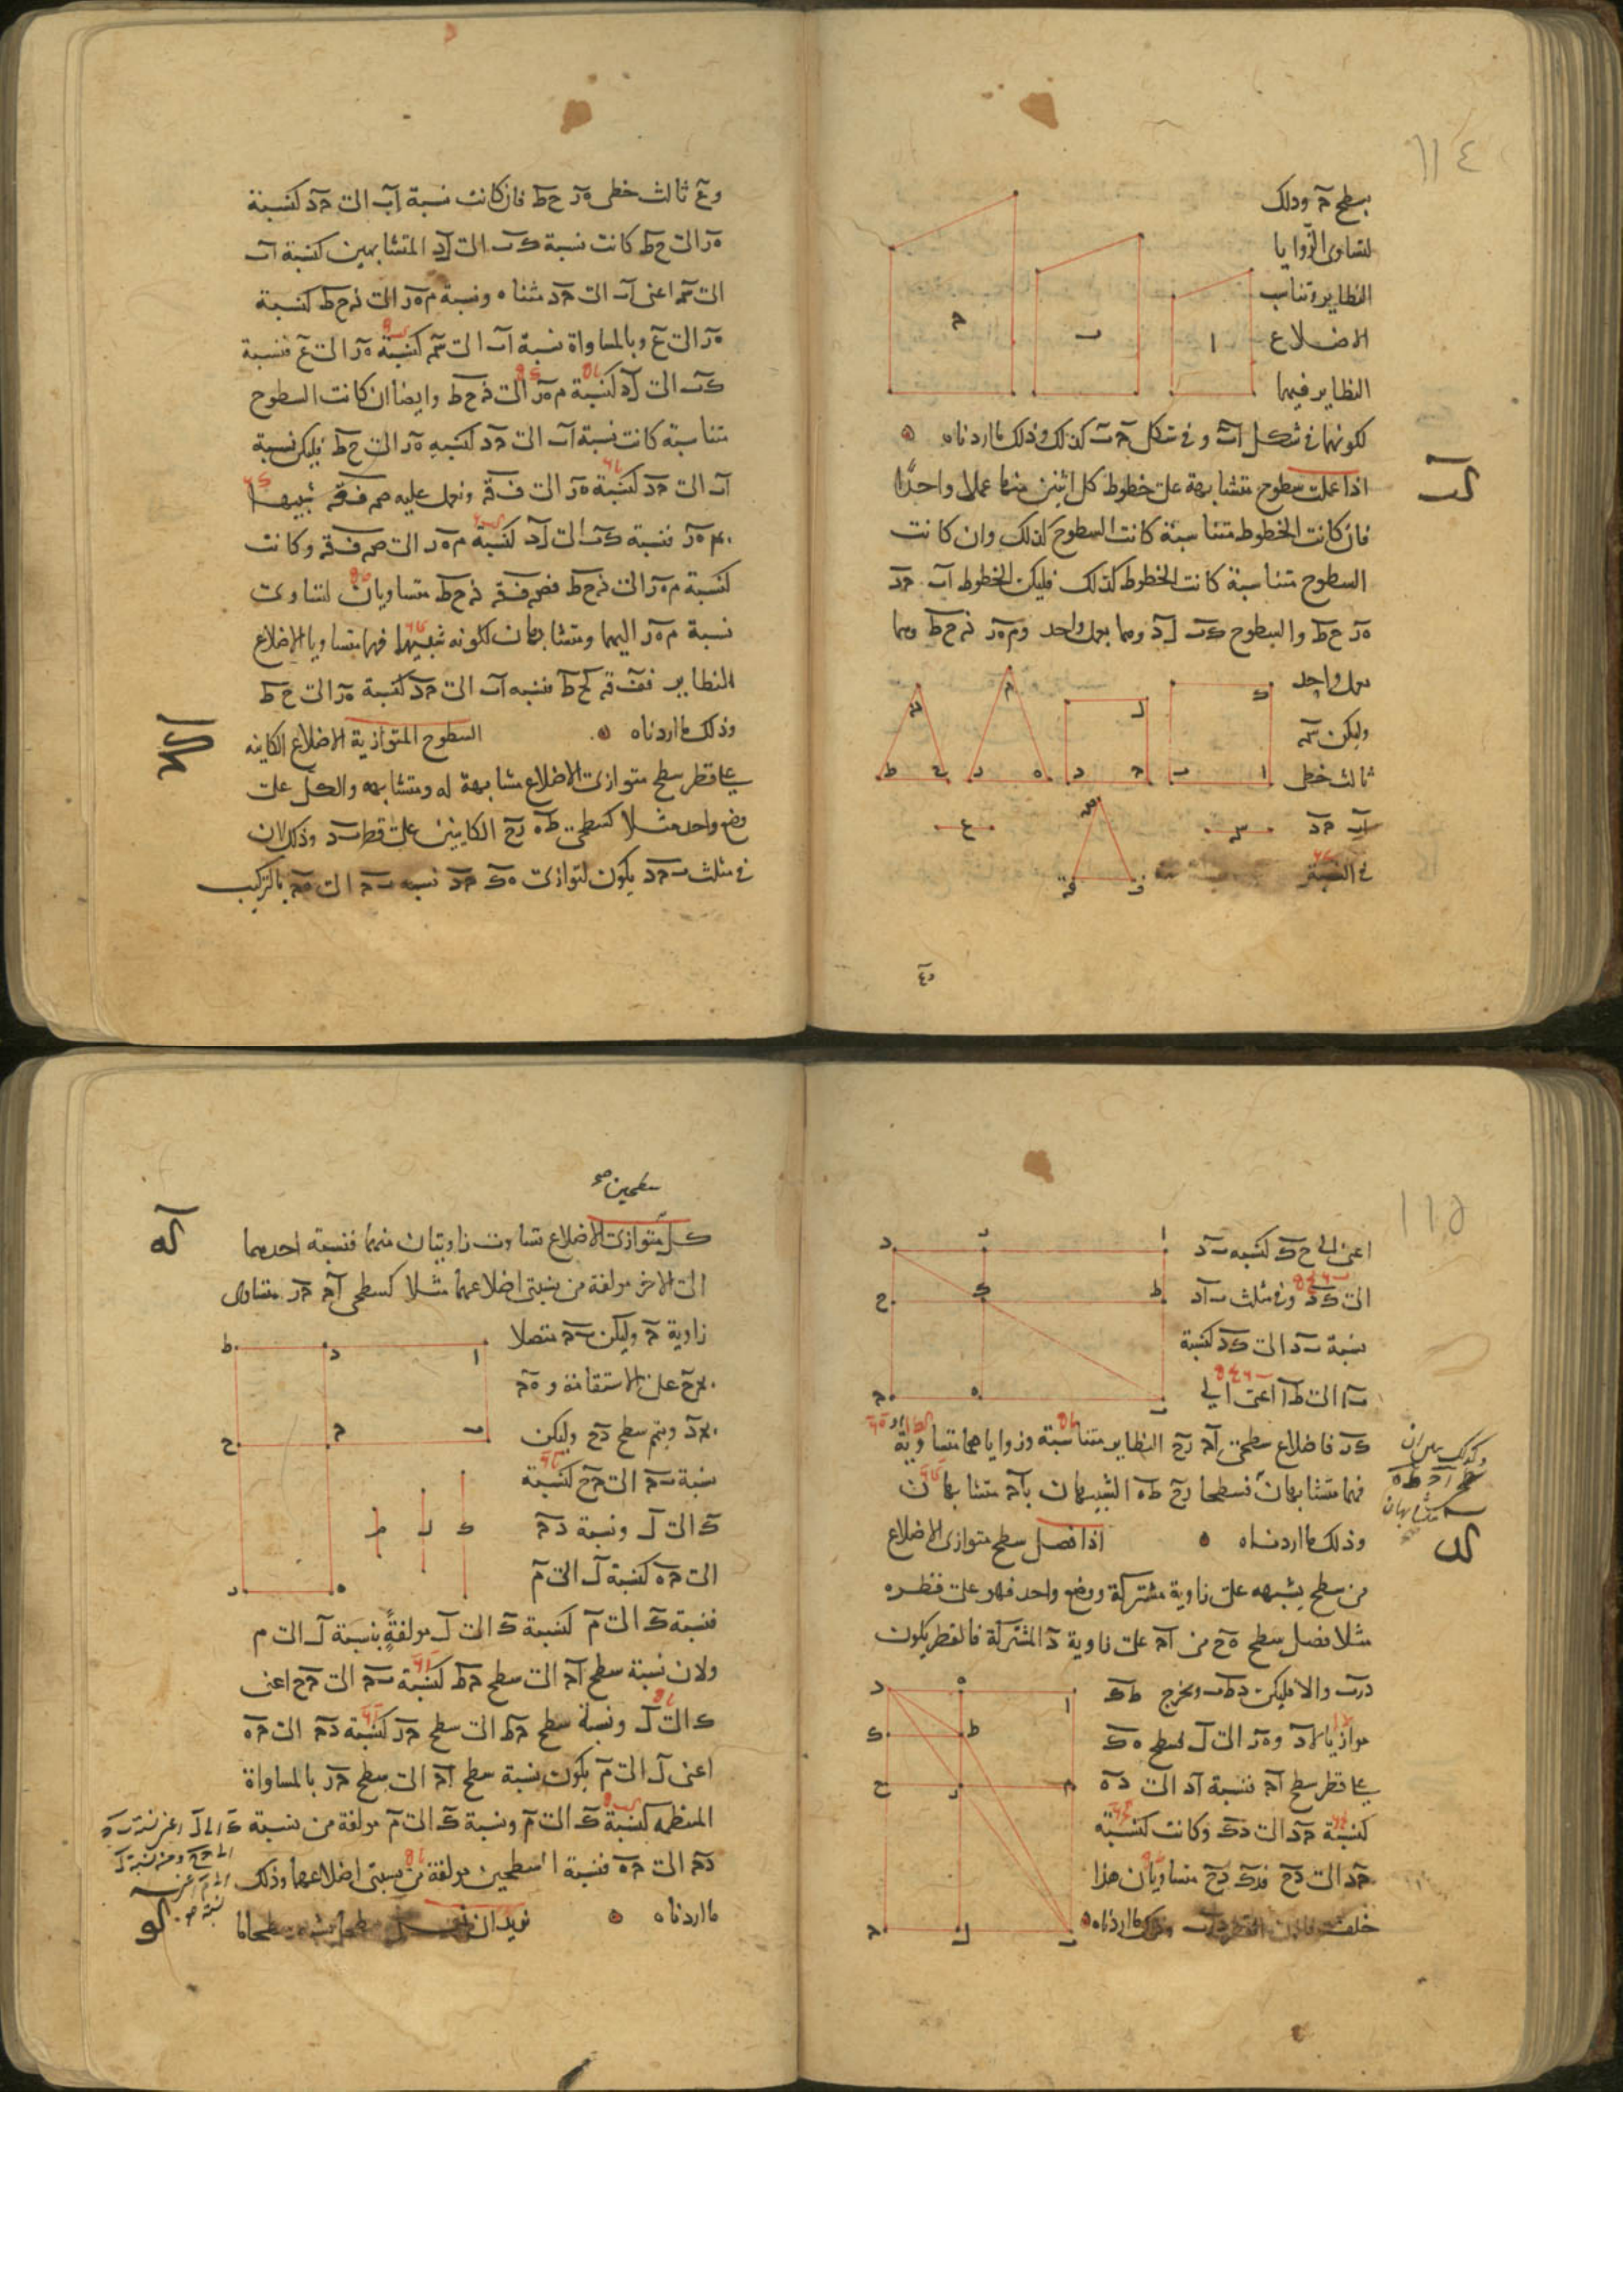 ١١٤
بسطح حـ وذلك
لتساوى الزوايا
النظاير وتناسب
الاضلاع
النظاير فيهما
لكونهما فى شكل اب وفى شكل حـ ب كذلك وذلك ما اردناه
كب
اذا عملت سطوح متشابهة على خطوط كل اثنين منها عملا واحدا
فان كانت الخطوط متناسبة كانت السطوح كذلك وان كانت
السطوح متناسبة كانت الخطوط كذلك فليكن الخطوط اب حد
هز حط والسطوح كب لد وهما بعمل واحد ومهز نحط وهما
بعمل واحد
وليكن سـ
ثالث خطى
اب حد
فى النسبة
وع ثالث خطى هز حط فان كانت نسبة اب الى حد كنسبة
هز الى حط كانت نسبة كب الى لد المتشابهين كنسبة اب
الى سـ اعنى اب الى حد مثناه ونسبة مهز الى نحط كنسبة
هز الى ع وبالمساواة نسبة اب الى سـ كنسبة هز الى ع فنسبة
كب الى لد كنسبة مهز الى نحط وايضا ان كانت السطوح
متناسبة كانت نسبة اب الى حد كنسبه هز الى حط فليكن نسبة
اب الى حد كنسبة هز الى فق ونعمل عليه صـ فق شبيها
بمهز فنسبة كب الى لد كنسبة مهز الى صـ فق وكانت
كنسبة مهز الى نحط فصـ فق نحط متساويان لتساوى
نسبة مهز اليهما ومتشابهان لكونه شبيهما فهما متساويا الاضلاع
النظاير ففق كحط فنسبه اب الى حد كنسبة هز الى حط
وذلك ما اردناه السطوح المتوازية الاضلاع الكاينه
على قطر سطح متوازى الاضلاع مشابهة له ومتشابهه والكل على
وضع واحد مثلا كسطحى طه رح الكاينين على قطر بد وذلك لان
فى مثلث بحد يكون لتوازى هك حد نسبه بح الى هح بالتركيب
١١٥
اعنى الى حك كنسبه بد
الى كد وفى مثلث باد
نسبة بد الى كد كنسبة
با الى طا اعنى الى
كر فاضلاع سطحى اح رح النظاير متناسبة وزواياهما متساوية
فهما متشابهان فسطحا رح طه الشبيهان باح متشابهان
وذلك ما اردناه اذا فصل سطح متوازى الاضلاع
كد
من سطح يشبهه على زاوية مشتركة ووضع واحد فهو على قطره
مثلا فصل سطح هح من اح على زاوية د المشتركة فالقطر يكون
درب والا فليكن دطب ونخرج طك
موازيا لاد وهز الى ل فسطح هك
على قطر سطح اح فنسبة اد الى ده
كنسبة حد الى دك وكانت كنسبة
حد الى دح فدك دح متساويان هذا
خلف وذلك ما اردناه
سطحين
كه
كل متوازى الاضلاع تساوت زاويتان منهما فنسبة احدهما
الى الاخر مولفة من نسبتى اضلاعهما مثلا كسطحى اح حر متساوى
زاوية ح وليكن بح متصلا
بحح على الاستقامة وهح
بحد ونتم سطح دح وليكن
نسبة بح الى حح كنسبة
ك الى ل ونسبة دح
الى حه كنسبة ل الى م
فنسبة ك الى م كنسبة ك الى ل مولفة بنسبة ل الى م
ولان نسبة سطح اح الى سطح حط كنسبة بح الى حح اعنى
ك الى ل ونسبة سطح حط الى سطح حر كنسبة دح الى حه
اعنى ل الى م يكون نسبة سطح اح الى سطح حر بالمساواة
المنتظمه كنسبة ك الى م ونسبة ك الى م مولفة من نسبة
دح الى حه فنسبة السطحين مولفة من نسبتى اضلاعهما وذلك
ما اردناه نريد ان
كو